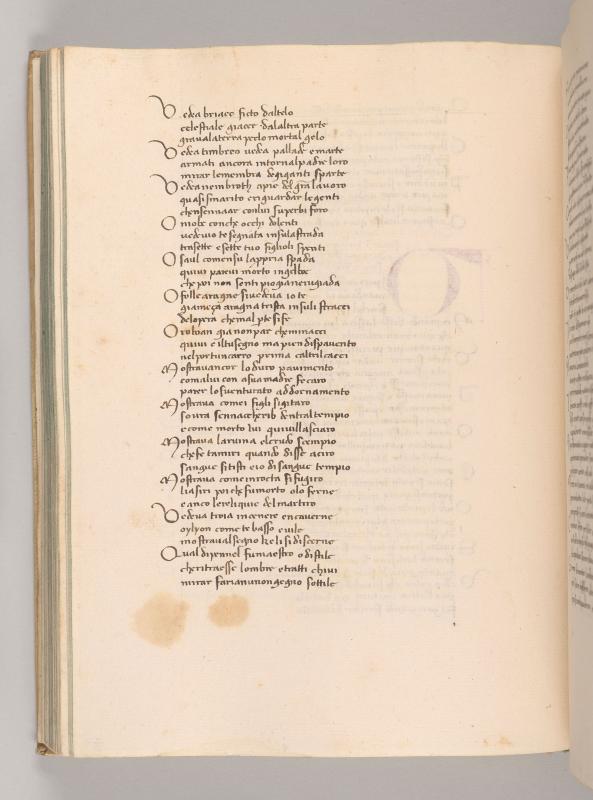 Vedea briareo ficto daltelo
celestiale giacer dalaltra parte
grave alaterra perlo mortal gelo
Vedea timbreo vedea pallade e marte
armati ancora intornalpadre loro
mirar lemembra degiganti sparte
Vedea nembroth apie del gra lavoro
quasi smarito e riguardar legenti
chensennaar conlui superbi foro
O niobe conche occhi dolenti
vedevio te segnata insulastrada
trasette e sette tuo figlioli spenti
O saul comensu lappria spada
quivi parevi morto ingelboe
che poi non senti piogia nerugiada
O folle aragne si vedeva io te
gia meça aragna trista insuli stracci
delopera chemal pte si fe
O roboan gia non par cheminacci
quivi el tuo segno ma pien dispavento
nel porta un carro prima caltril cacci
Mostravancor lo duro pavimento
comalmeon a sua madre fe caro
parer lo sventurato addornamento
Mostrava come i figli si gitaro
sovra sennacherib dentral tempio
e come morto lui quivi il lasciaro
Mostrava la ruina el crudo scempio
che fe tamiri quando disse a ciro
sangue sitisti e io di sangue tempio
Mostrava come inrocta si fugiro
li asiri poi che fu morto oloferne
e anco le reliquie del martiro
Vedeva troia in cenere e n caverne
o ylyon come te basso e vile
mostrava il segno ke li si discerne
Qual di pennel fu maestro o di stile
che ritraesse lombre e tratti chivi
mirar farian uno ngegno sottile